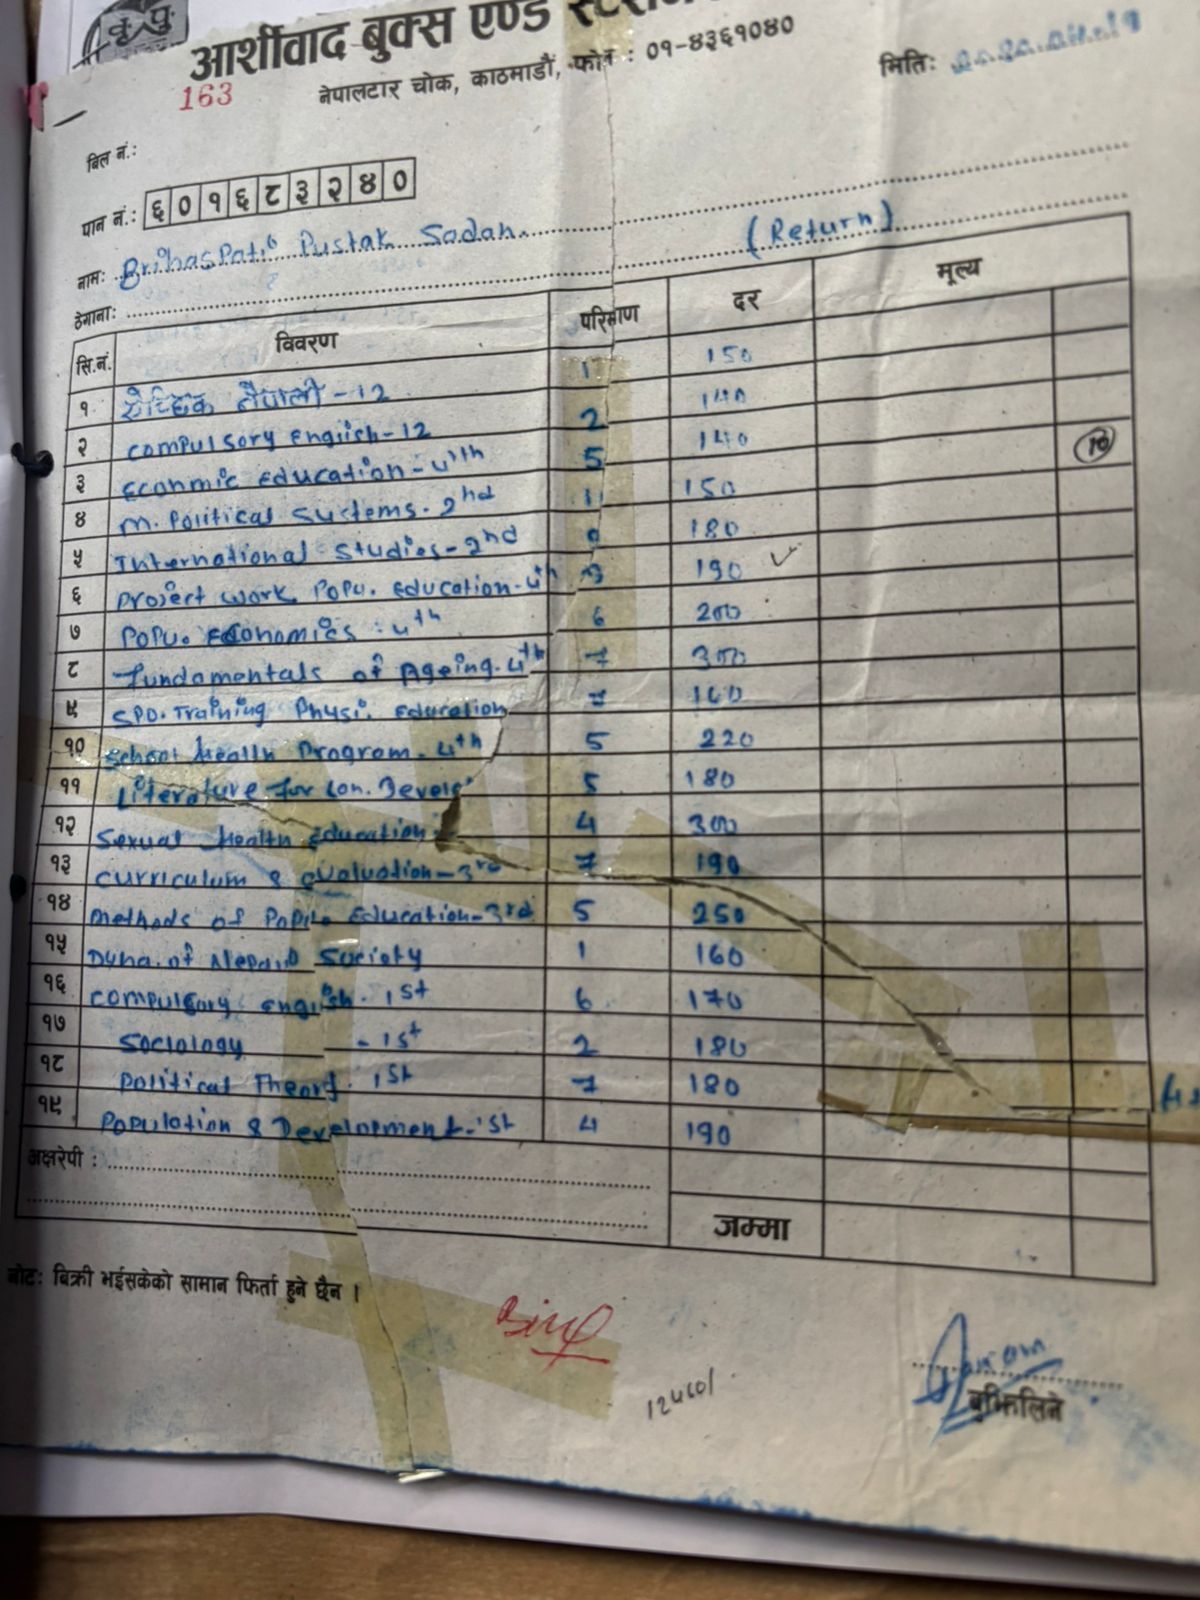 आर्शीवाद बुक्स एण्ड
नेपालटार चोक, काठमाडौं, फोन : ०१-४३६१०४०
163
मितिः
बिल नं.:
पान नं.: ६०१६८३२४०
नामः Brihaspati Pustak Sadan
(Return)
ठेगानाः
सि.नं. विवरण परिमाण दर मूल्य
१ ऐच्छिक नेपाली - 12 1 150
२ Compulsory Engiish - 12 2 140
३ Econmic Education - 4th 5 140 10
४ M. Political Sustems - 2nd 1 150
५ International Studies - 2nd 180
६ Project Work Popu. Education - 4th 3 190
७ Popu. Economics : 4th 6 200
८ Fundamentals of Ageing - 4th 7 300
९ Training Physi. Education 7 160
१० School Health Program - 4th 5 220
११ Literature for Lan. 5 180
१२ Sexual Health Education 4 300
१३ Curriculum & evaluation - 3rd 7 190
१४ Methods of Education - 3rd 5 250
१५ of Society 1 160
१६ Compulsory English - 1st 6 170
१७ Sociology - 1st 2 180
१८ Political Theory - 1st 7 180
१९ Population & Development - 1st 4 190
अक्षरेपी :
जम्मा
नोटः बिक्री भईसकेको सामान फिर्ता हुने छैन ।
12460/
बुझिलिने